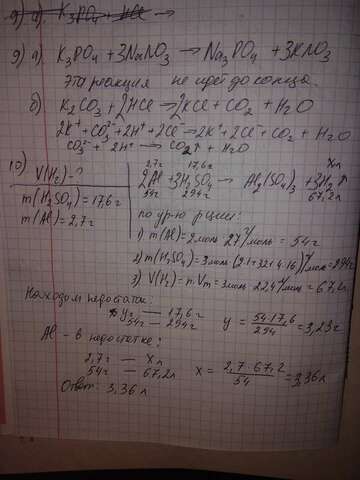 9) а) K3PO4 + HCl →
9) а) K3PO4 + 3NaNO3 → Na3PO4 + 3KNO3
Эта реакция не идёт до конца.
б) K2CO3 + 2HCl → 2KCl + CO2 + H2O
2K⁺ + CO3²⁻ + 2H⁺ + 2Cl⁻ → 2K⁺ + 2Cl⁻ + CO2 + H2O
CO3²⁻ + 2H⁺ → CO2↑ + H2O
10)
V(H2) - ?
m(H2SO4) = 17,6г
m(Al) = 2,7г
2,7г 17,6г Xл
2Al + 3H2SO4 → Al2(SO4)3 + 3H2↑
54г 294г 67,2л
по ур-ю р-ции:
1) m(Al) = 2моль 27 г/моль = 54г
2) m(H2SO4) = 3моль (2·1+32+4·16) г/моль = 294г
3) V(H2) = n·Vm = 3моль 22,4 л/моль = 67,2л
Находим недостаток
yг — 17,6г
54г — 294г
y = 54·17,6 / 294 = 3,23г
Al - в недостатке:
2,7г — Xл
54г — 67,2л
x = 2,7·67,2 / 54 = 3,36л
Ответ: 3,36л